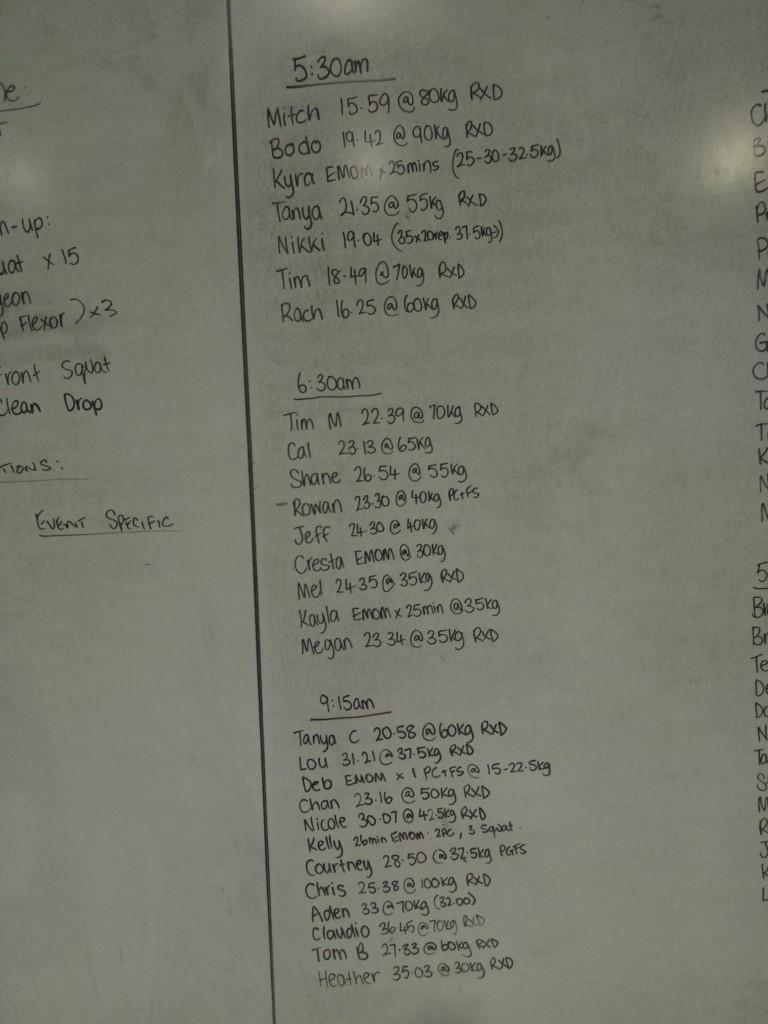 n-up:
uat x 15
eon
p Flexor ) x3
ront Squat
Clean Drop
TIONS:
EVENT SPECIFIC
5:30am
Mitch 15.59 @ 80kg RXD
Bodo 19.42 @ 90kg RXD
Kyra EMOM x 25mins (25-30-32.5kg)
Tanya 21.35 @ 55kg RXD
Nikki 19.04 (35x20rep. 37.5kg)
Tim 18.49 @ 70kg RXD
Rach 16.25 @ 60kg RXD
6:30am
Tim M 22.39 @ 70kg RXD
Cal 23.13 @ 65kg
Shane 26.54 @ 55kg
- Rowan 23.30 @ 40kg PC+FS
Jeff 24.30 @ 40kg
Cresta EMOM @ 30kg
Mel 24.35 @ 35kg RXD
Kayla EMOM x 25min @ 35kg
Megan 23.34 @ 35kg RXD
9:15am
Tanya C 20.58 @ 60kg RXD
Lou 31.21 @ 37.5kg RXD
Deb EMOM x 1 PC+FS @ 15-22.5kg
Chan 23.16 @ 50kg RXD
Nicole 30.07 @ 42.5kg RXD
Kelly 26min EMOM: 2PC, 3 Squat.
Courtney 28.50 @ 37.5kg PCFS
Chris 25.38 @ 100kg RXD
Aden 33 @ 70kg (32.00)
Claudio 36.45 @ 70kg RXD
Tom B 27.33 @ 60kg RXD
Heather 35.03 @ 30kg RXD